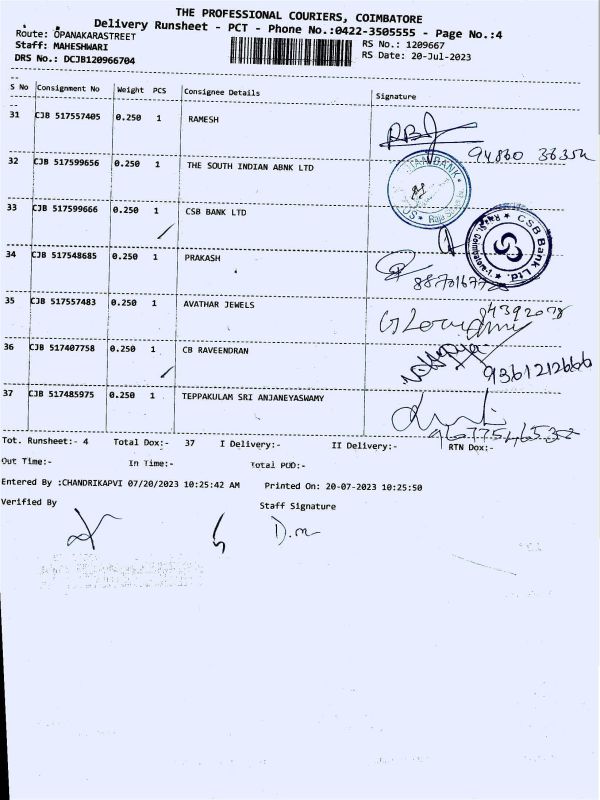 THE PROFESSIONAL COURIERS, COIMBATORE
Delivery Runsheet - PCT - Phone No.:0422-3505555 - Page No.:4
Route: OPANAKARASTREET
RS No.: 1209667
Staff: MAHESHWARI
RS Date: 20-Jul-2023
DRS No.: DCJB120966704
S No Consignment No Weight PCS Consignee Details Signature
31 CJB 517557405 0.250 1 RAMESH
94860
32 CJB 517599656 0.250 1 THE SOUTH INDIAN ABNK LTD
33 CJB 517599666 0.250 1 CSB BANK LTD
CSB Bank Ltd.
34 CJB 517548685 0.250 1 PRAKASH
35 CJB 517557483 0.250 1 AVATHAR JEWELS
36 CJB 517407758 0.250 1 CB RAVEENDRAN
37 CJB 517485975 0.250 1 TEPPAKULAM SRI ANJANEYASWAMY
Tot. Runsheet:- 4 Total Dox:- 37 I Delivery:- II Delivery:- RTN Dox:-
Out Time:- In Time:- Total POD:-
Entered By :CHANDRIKAPVI 07/20/2023 10:25:42 AM Printed On: 20-07-2023 10:25:50
Verified By Staff Signature